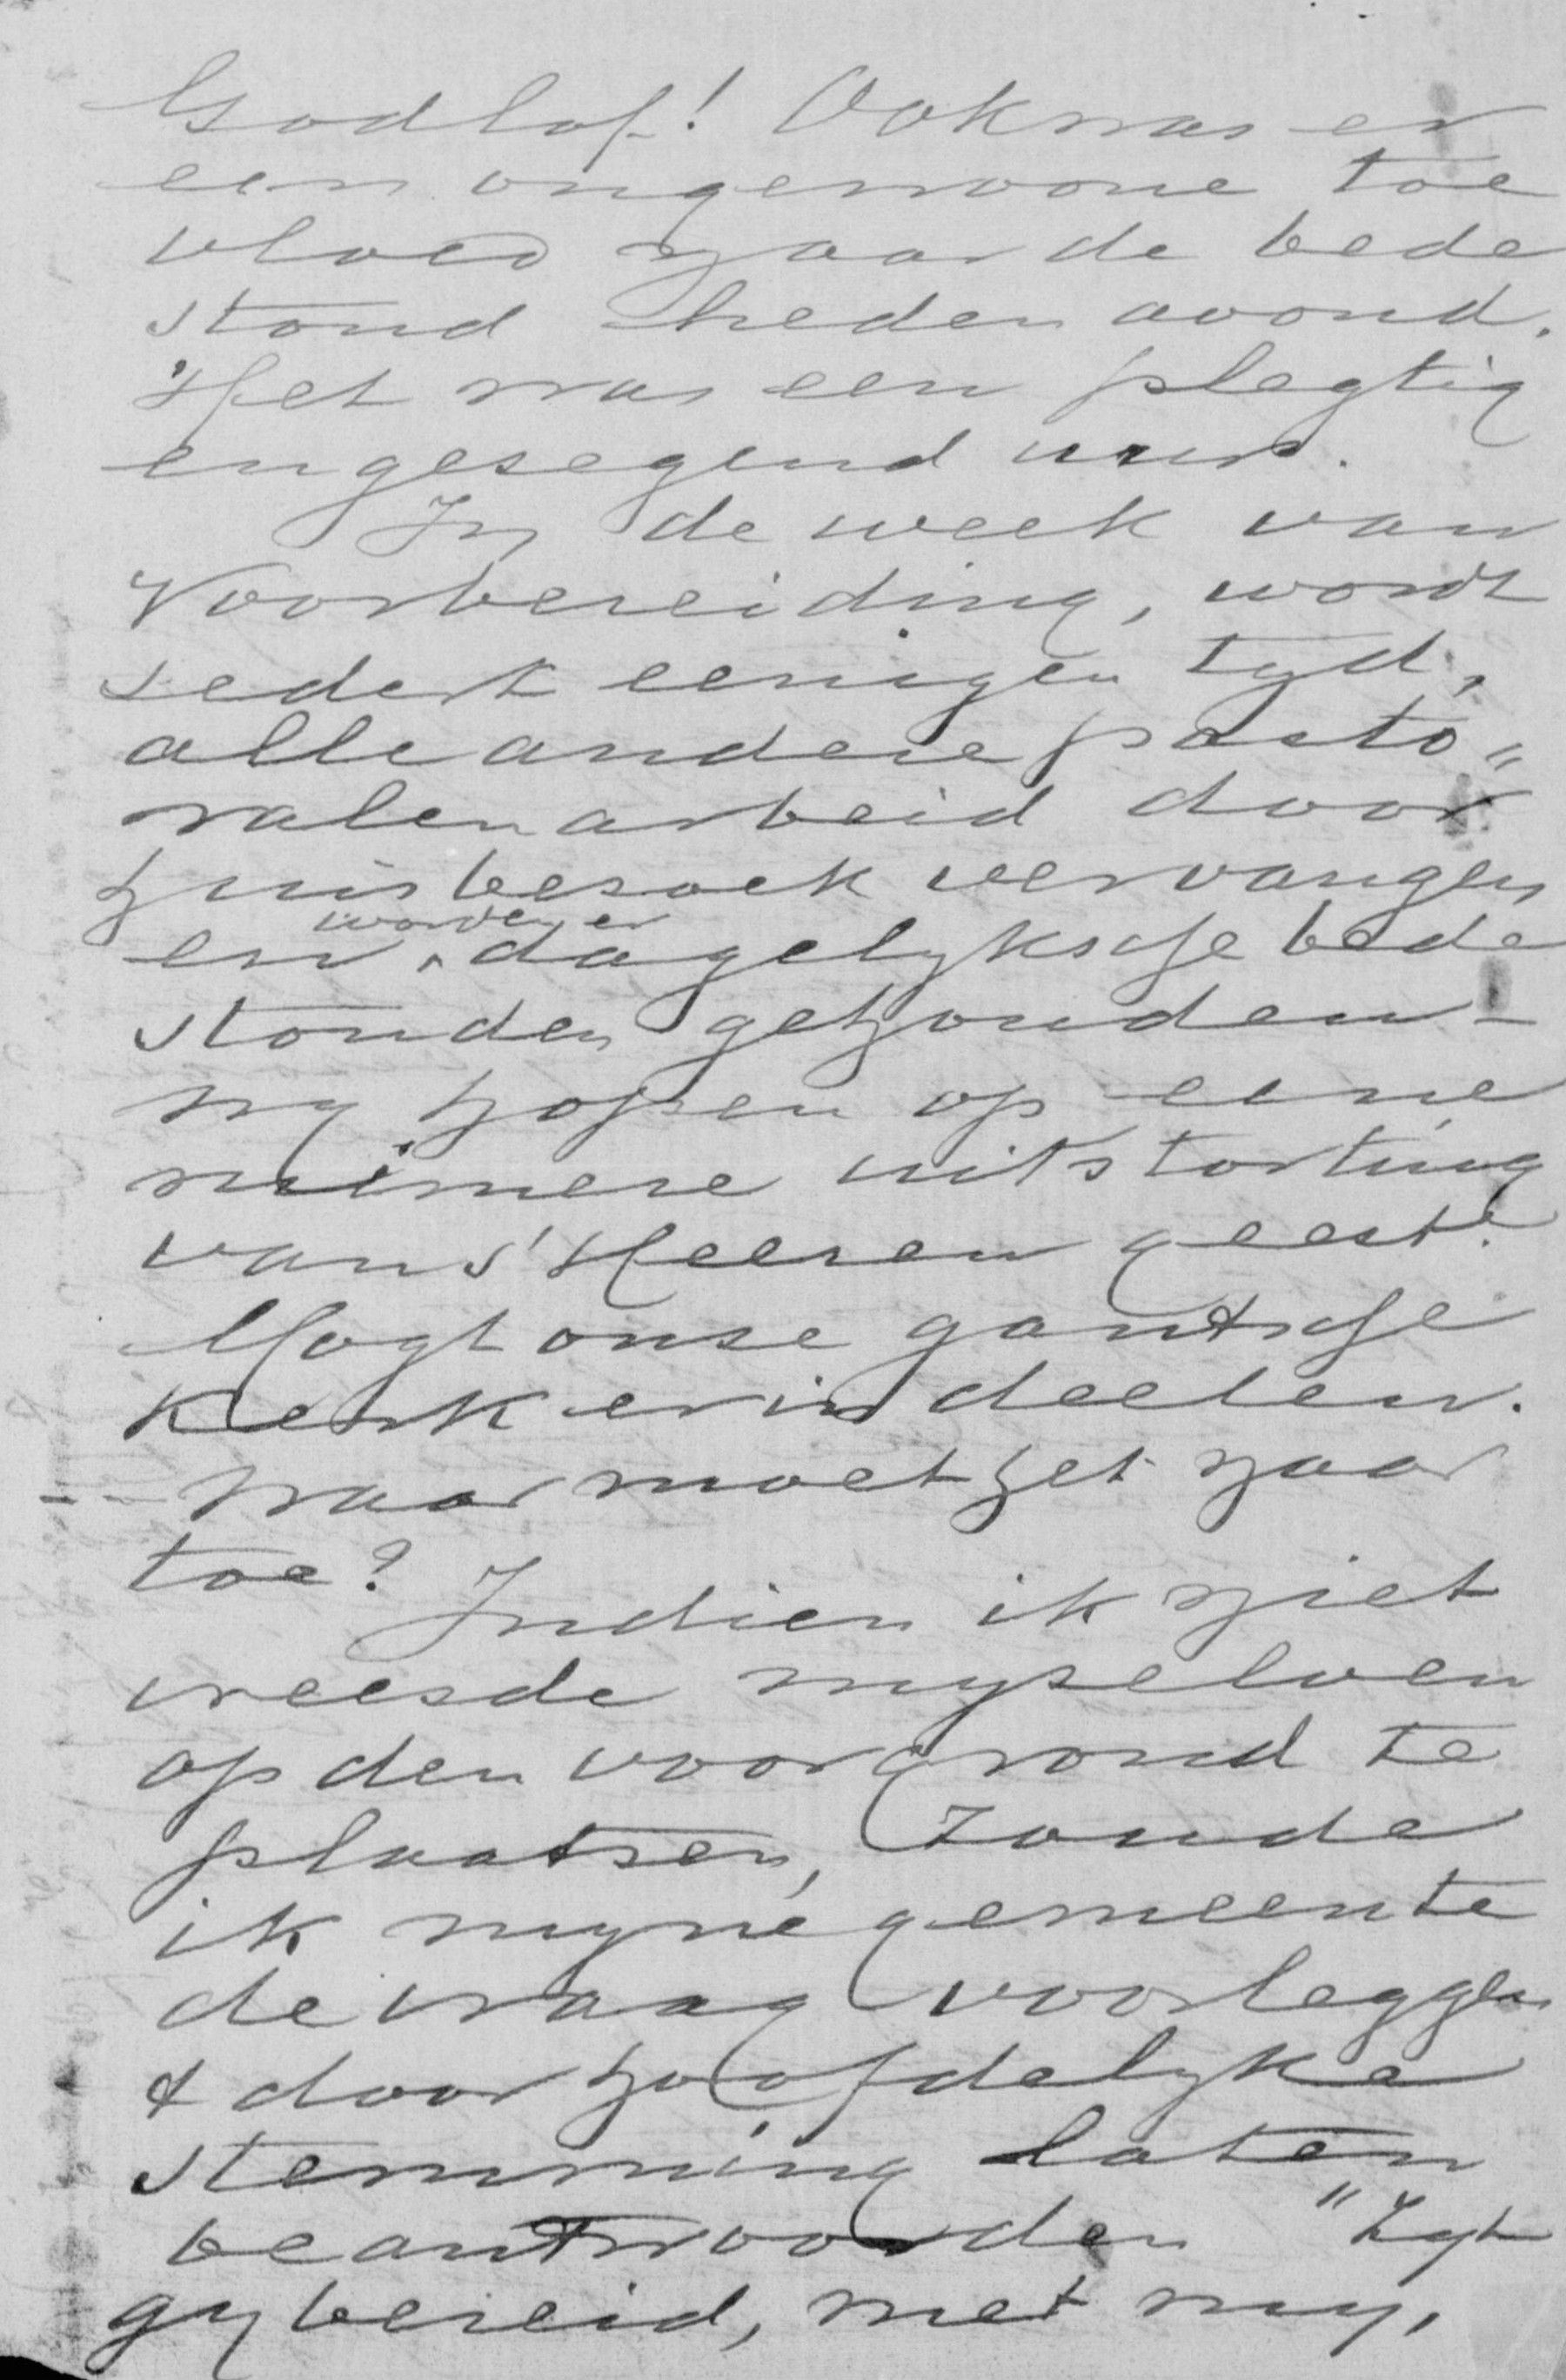 Godlof! Ook was er
een ongewone toe
vloed naar de bede
stond heden avond.
Het was een plegtig
en gesegend uur.
In de week van
Voorbereiding, wordt
sedert eenigen tyd,
alle andere pasto„
ralen arbeid door
huisbesoek vervangen
en worden er dagelyksche bede
stonden gehouden -
wy hopen op eene
ruimere uitstorting
van s'Heeren geest!
Mogt onse gantsche
Kerk er in deelen.
Waar moet het naar
toe? Indien ik niet
vreesde myselven
op den voorgrond te
plaatsen, Zoude
ik myne gemeente
de vraag voorleggen
& door hoofdelyke
stemming laten
beantwoorden "Zyt
gy bereid, met my,